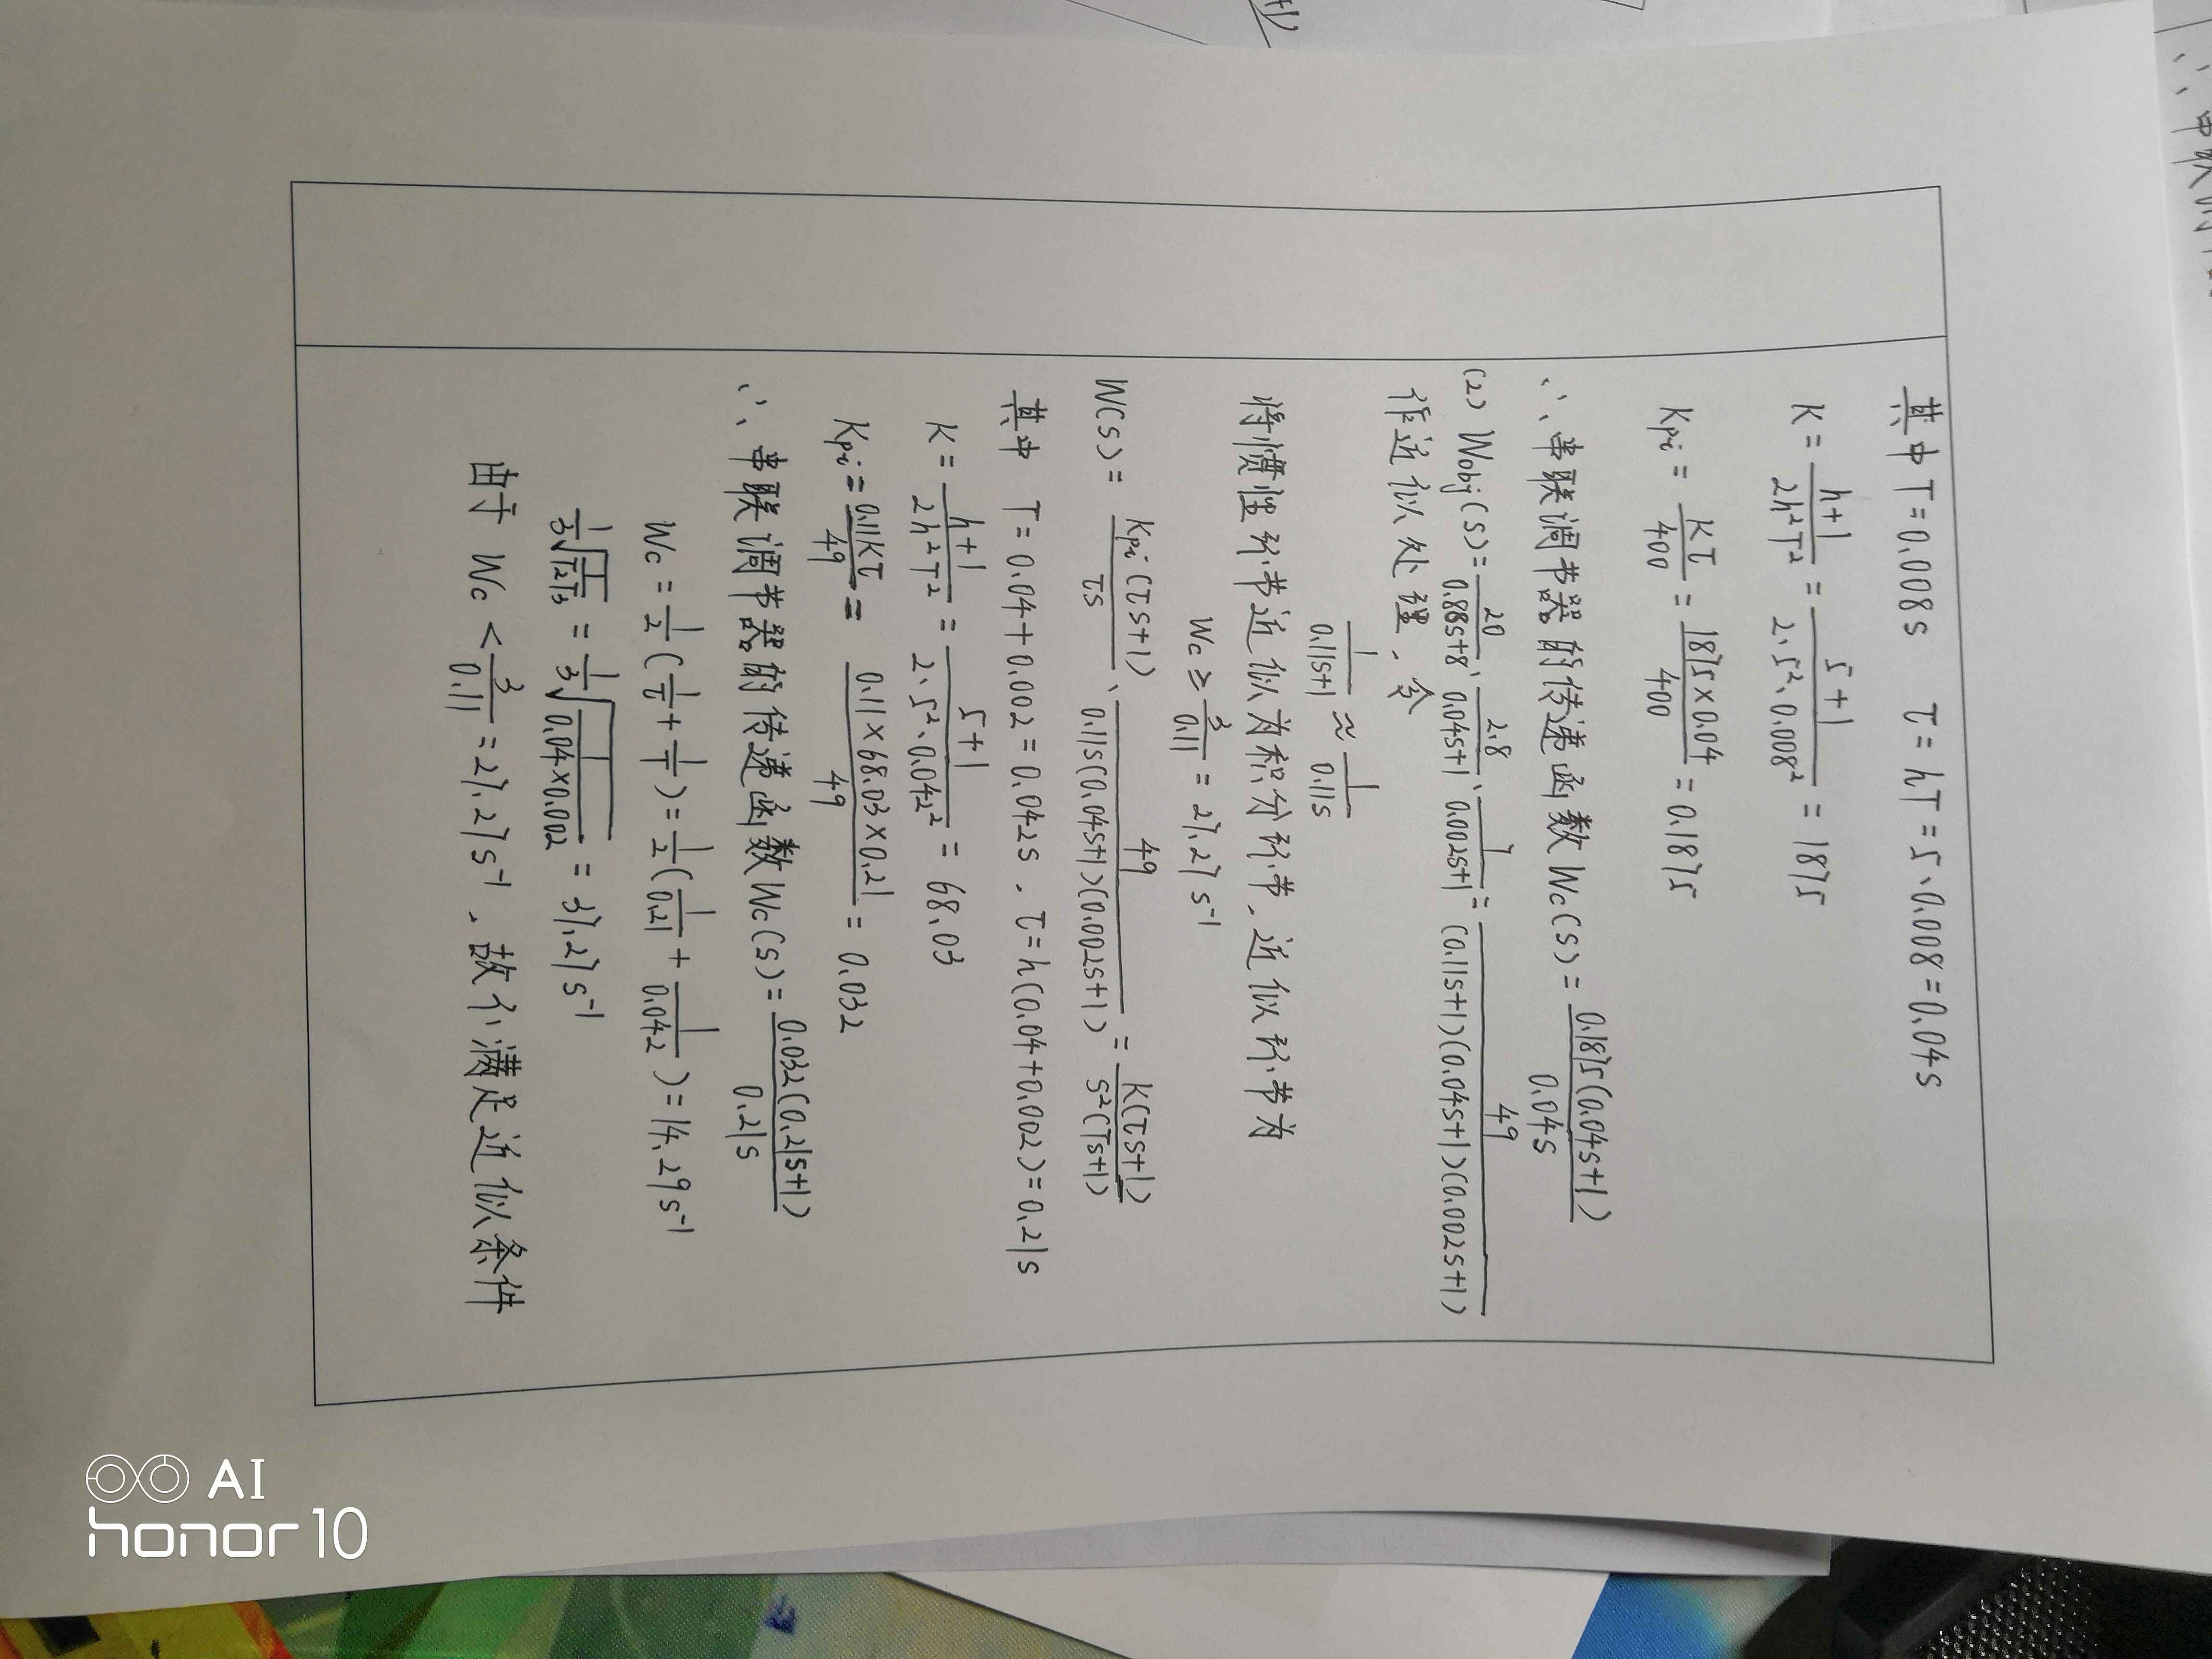 其中 T=0.008s τ=hT=5·0.008=0.04s
K=\frac{h+1}{2h²T²}=\frac{5+1}{2·5²·0.008²}=1875
Kpi=\frac{Kτ}{400}=\frac{1875×0.04}{400}=0.1875
∴串联调节器的传递函数Wc(s)=\frac{0.1875(0.04s+1)}{0.04s}
(2) Wobj(s)=\frac{20}{0.88s+8}·\frac{2.8}{0.04s+1}·\frac{7}{0.002s+1}=\frac{49}{(0.11s+1)(0.04s+1)(0.002s+1)}
作近似处理,令
\frac{1}{0.11s+1}≈\frac{1}{0.11s}
将惯性环节近似为积分环节,近似环节为
Wc≥\frac{3}{0.11}=27.27s⁻¹
W(s)=\frac{Kpi(τs+1)}{τs}·\frac{49}{0.11s(0.04s+1)(0.002s+1)}=\frac{K(τs+1)}{s²(Ts+1)}
其中 T=0.04+0.002=0.042s,τ=h(0.04+0.002)=0.21s
K=\frac{h+1}{2h²T²}=\frac{5+1}{2·5²·0.042²}=68.03
Kpi=\frac{0.11Kτ}{49}=\frac{0.11×68.03×0.21}{49}=0.032
∴串联调节器的传递函数Wc(s)=\frac{0.032(0.21s+1)}{0.21s}
Wc=\frac{1}{2}(\frac{1}{τ}+\frac{1}{T})=\frac{1}{2}(\frac{1}{0.21}+\frac{1}{0.042})=14.29s⁻¹
\frac{1}{3}\sqrt{\frac{1}{T2T3}}=\frac{1}{3}\sqrt{\frac{1}{0.04×0.002}}=37.27s⁻¹
由于 Wc<\frac{3}{0.11}=27.27s⁻¹,故不满足近似条件
AI
honor 10